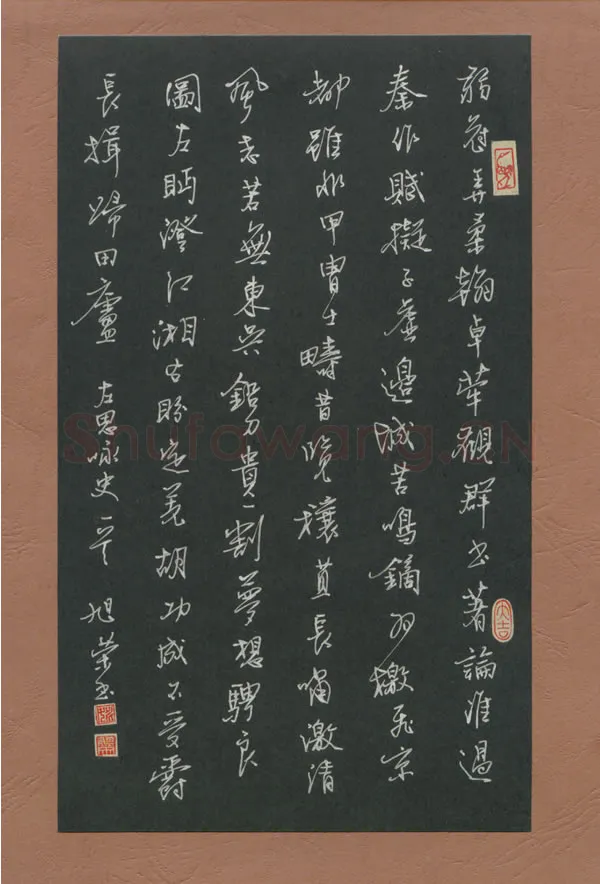 弱冠弄柔翰卓犖觀群书著論准過
秦作賦擬子虛邊城苦鳴鏑羽檄飛京
都雖非甲胄士疇昔覽穰苴長嘯激清
風志若無東吳鉛刀貴一割夢想騁良
圖左眄澄江湘右盼定羌胡功成不受爵
長揖歸田廬 左思咏史一首 旭荣书
大吉
Shufawang.CN